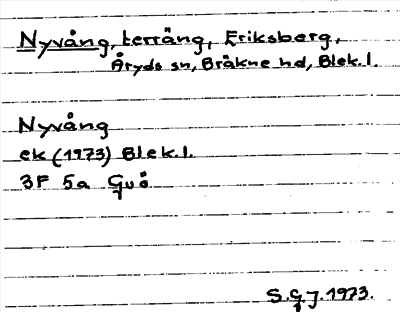 Nyvång, terräng, Eriksberg,
Åryds sn, Bräkne hd, Blek.l.
Nyvång
ek (1973) Blek.l.
3F 5a Guö
S.G.J. 1973.